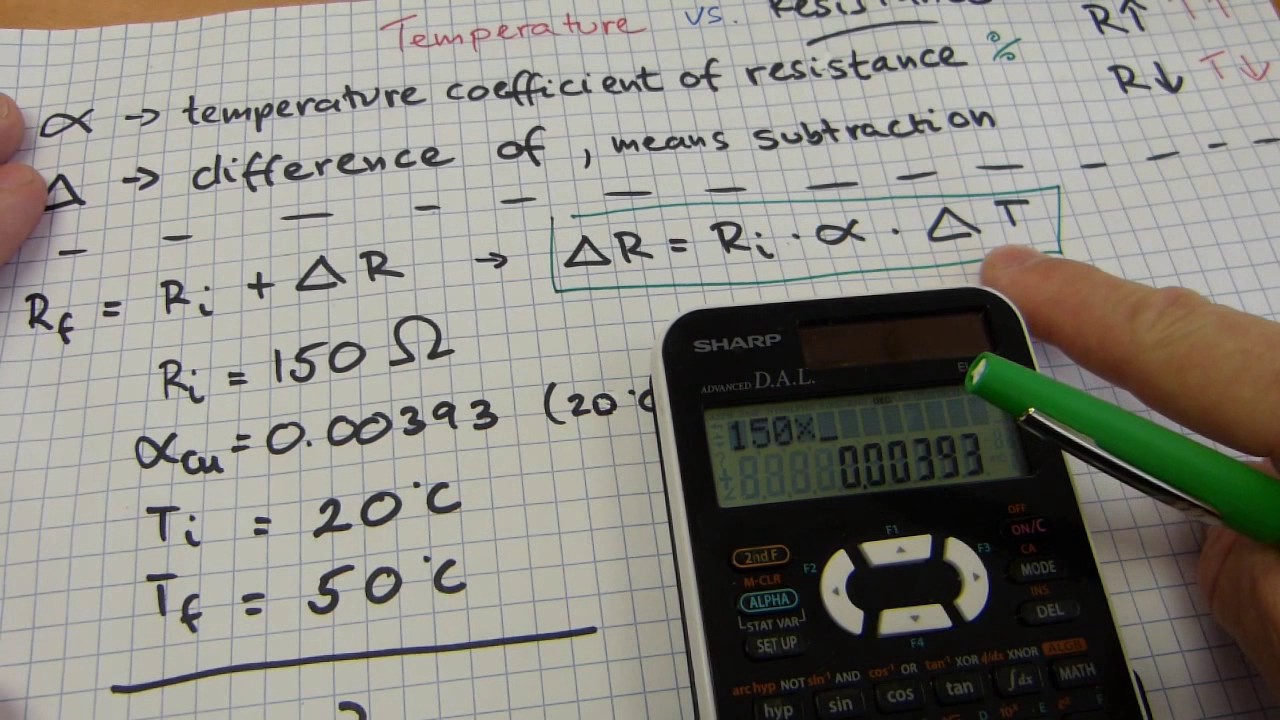 Temperature vs. Resistance
R↑ T↑
α → temperature coefficient of resistance %
R↓ T↓
Δ → difference of, means subtraction
R_f = R_i + ΔR → ΔR = R_i · α · ΔT
R_i = 150 Ω
α_cu = 0.00393 (20°C
T_i = 20°C
T_f = 50°C
SHARP
ADVANCED D.A.L.
150×_
0.00393
OFF
2nd F F1 ON/C
F2 F3 CA
M-CLR MODE
ALPHA INS
STAT VAR DEL
SET UP F4
arc hyp NOT sin⁻¹ AND cos⁻¹ OR tan⁻¹ XOR d/dx XNOR ALGB
hyp sin cos tan ∫dx MATH